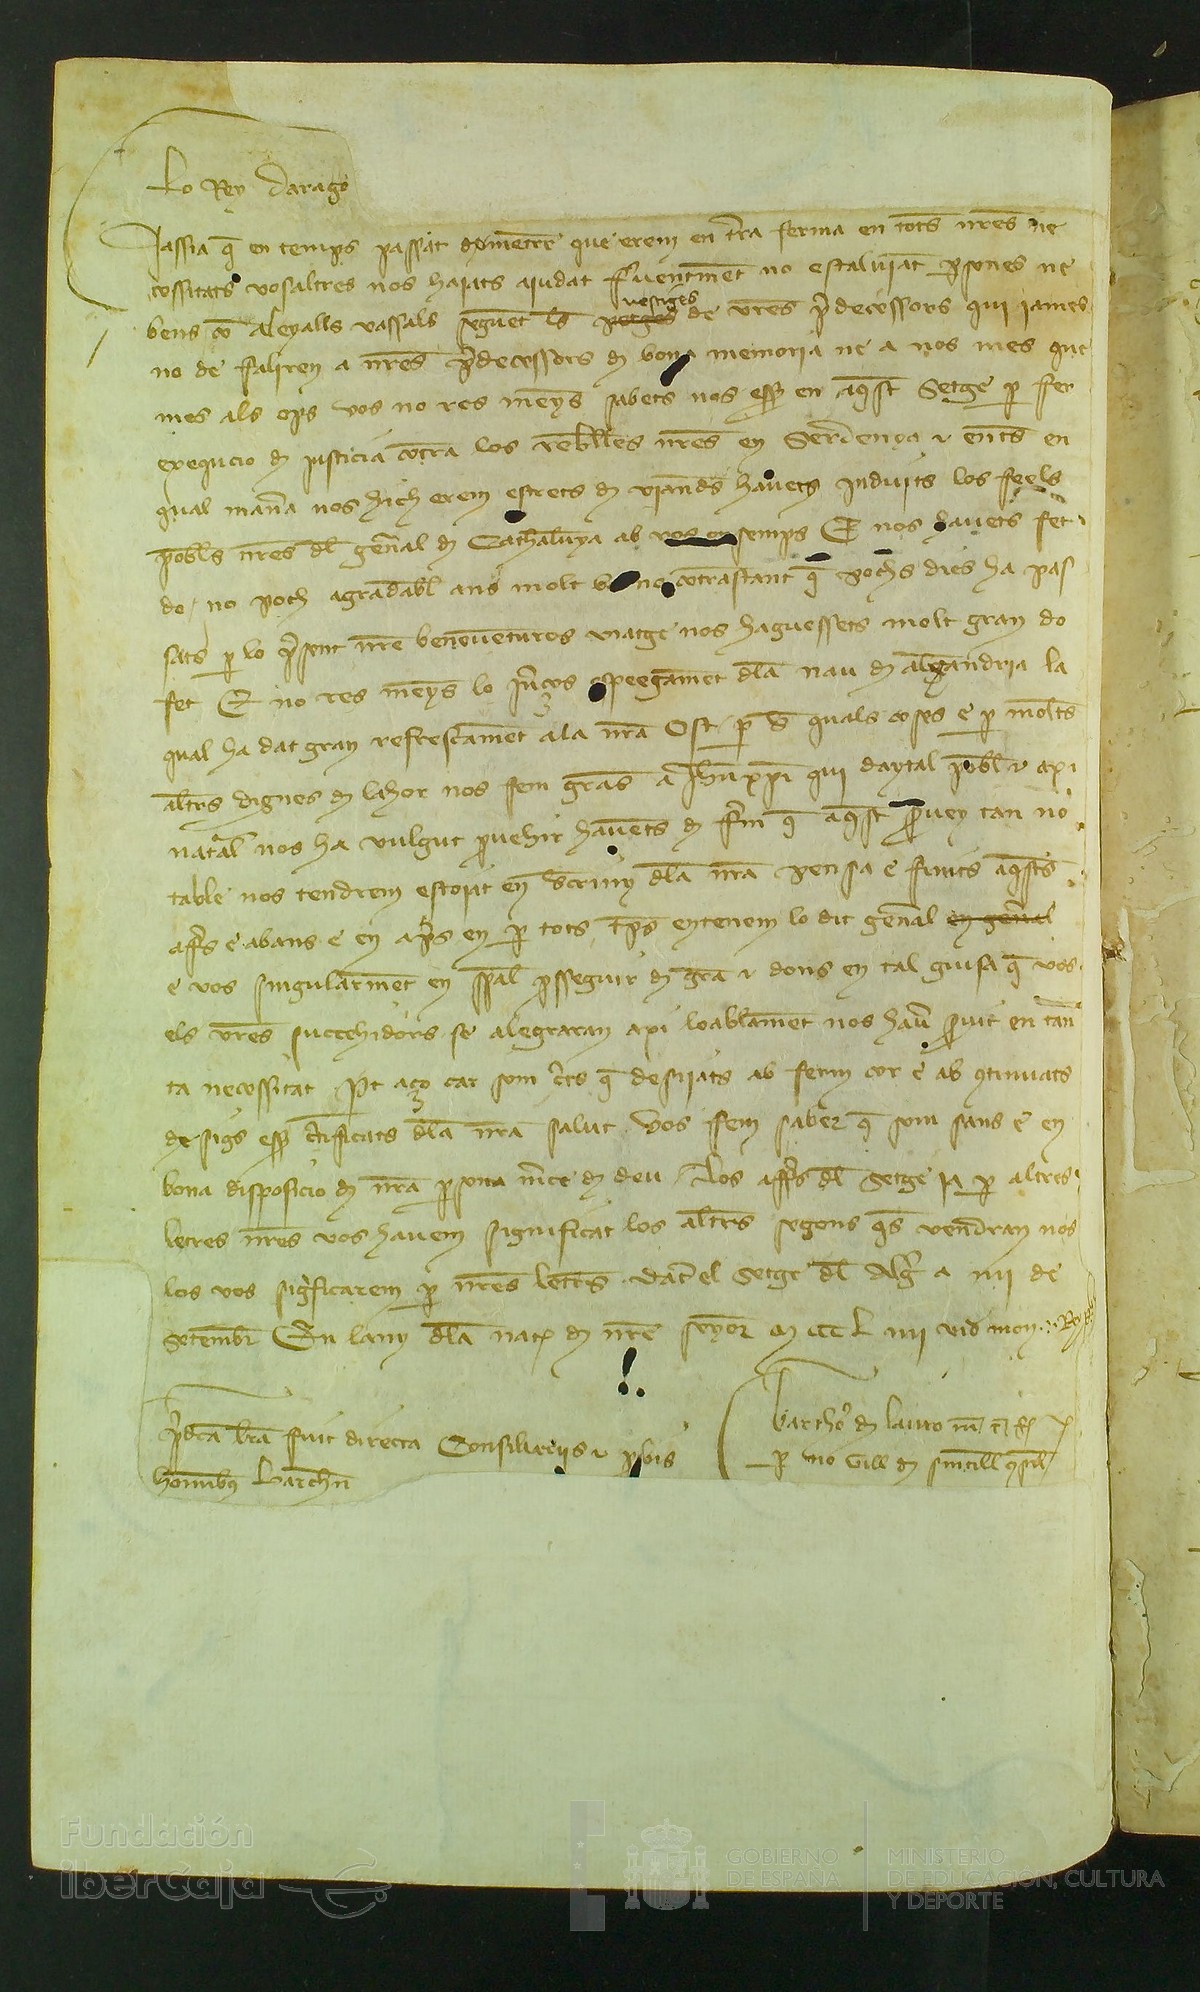 Lo Rey Darago
Jassia q̄ en temps passat dementre que erem en t̄ra ferma en tots nr̄es ne
cessitats vosaltres nos haiats aiudat no estalviāt psones ne
bens co aleyalls vassals seguēt ls petges vestiges de vr̄es p̄decessors qui iames
no de falliren a nr̄es p̄decessors d bona memoria ne a nos mes que
mes als ops vos no res menys sabets nos ess en aq̄st Setge p fer
exequcio d justicia cōtra los rebelles nr̄es en Serdenya e en
qual mana nos hich erem estrets d viandes havets induits los feels
pobles nr̄es dl gen̄al d Cathalunya ab vos ensemps E nos havets fet
do no poch agradabl ans molt no cōtrastant q̄ pochs dies ha pas
sats p lo p̄sent nr̄e benevēturos viatge nos haguessets molt gran do
fet E no res menys lo dla nau d alexandria la
qual ha dat gran refrescamēt ala nr̄a Ost p ls quals coses e p molts
altres dignes d lahor nos fem gr̄as a Jhū xp̄i qui daytal pobl e axi
nat̄al nos ha vulgut p̄vehir havents d ferm q̄ aq̄st s̄vey tan no
table nos tendrem estoiat en scriny dla nr̄a pensa e finits aq̄sts
aff̄rs e abans e en ap̄s en p tots tp̄s entenem lo dit gen̄al en gen̄al
e vos singularmēt en sp̄al p̄sseguir d gr̄a e dons en tal guisa q̄ vos
els vr̄es succehidors se alegraran axi loablamēt nos hav̄ s̄vit en tan
ta necessitat Pt aço car som c̄ts q̄ desijats ab ferm cor e ab q̄tinuats
desigs ess c̄tificats dla nr̄a salut Vos fem saber q̄ som sans e en
bona disposicio d nr̄a psona m̄ce d deu Los aff̄rs dl Setge ja p altres
letres nr̄es vos havem significat los altres segons q̄s vendran nos
los vos significarem p nr̄es letres Dat̄ el Setge dl Alg̃ a iiij de
Setembr En lany dla nat̄ d nr̄e senyor M CCC L iiij vid mon Rex P
p̄dca lr̄a fuit directa Consiliariis e pbis
hominib Barchn̄
Bartho d Lauro
p no Gill d
Fundación
iberCaja
GOBIERNO
DE ESPAÑA
MINISTERIO
DE EDUCACIÓN, CULTURA
Y DEPORTE